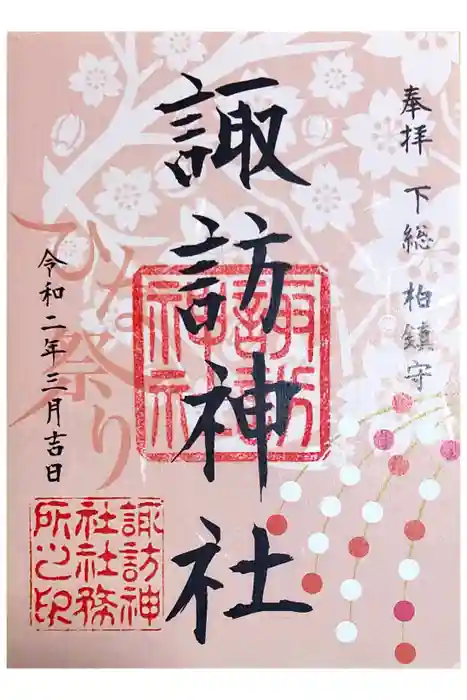 奉拝 下総 柏鎮守
諏訪神社
諏訪
神社
ひな祭り
令和二年三月吉日
諏訪神
社社務
所之印